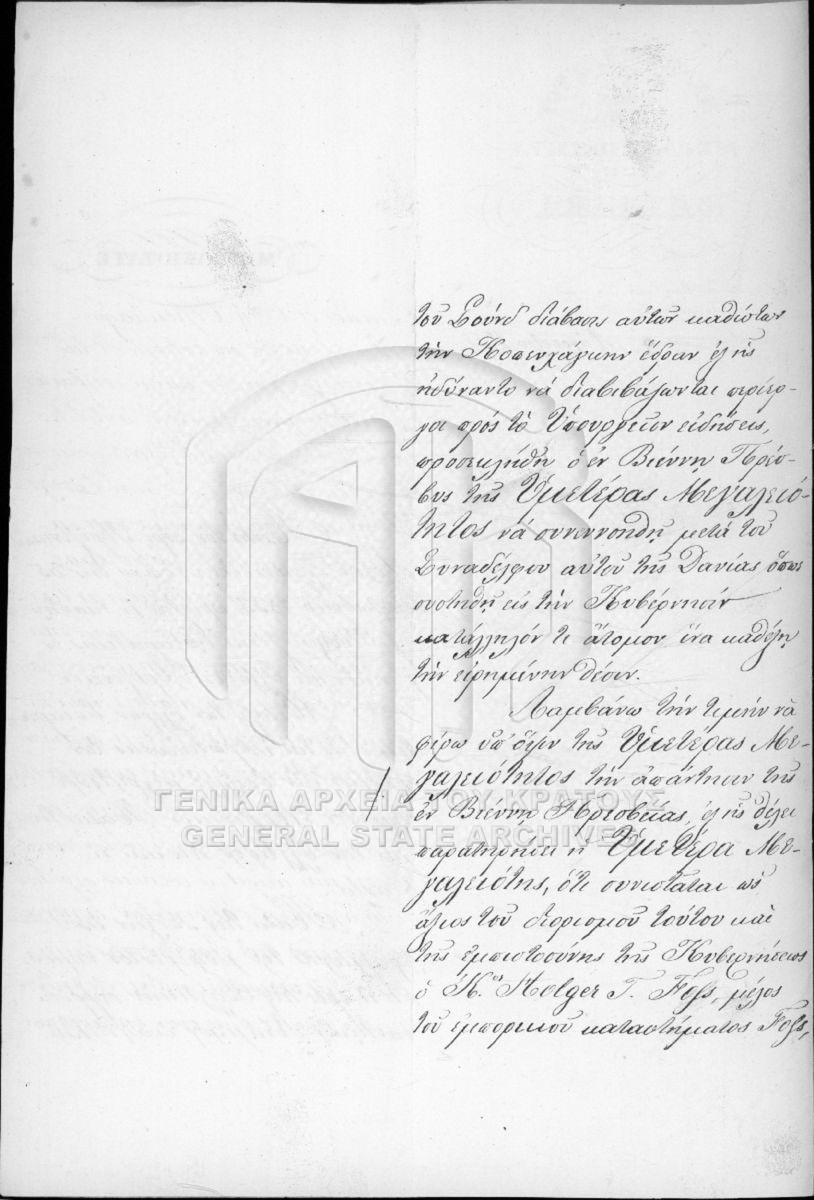 τοῦ Σούνδ διάβασις αὐτῶν καθίστων
τὴν Κοπενχάγκην ἕδραν ἐξ ἧς
ἠδύναντο νὰ διαβιβάζωνται περίερ-
γοι πρὸς τὸ Ὑπουργεῖον εἰδήσεις,
προσεκλήθη ὁ ἐν Βιέννῃ Πρέσ-
βυς τῆς Ὑμετέρας Μεγαλειό-
τητος νὰ συνεννοηθῇ μετὰ τοῦ
Συναδέλφου αὐτοῦ τῆς Δανίας ὅπως
συστηθῇ εἰς τὴν Κυβέρνησιν
κατάλληλόν τι ἄτομον ἵνα καθέξῃ
τὴν εἰρημένην θέσιν.
Λαμβάνω τὴν τιμὴν νὰ
φέρω ὑπ' ὄψιν τῆς Ὑμετέρας Με-
γαλειότητος τὴν ἀπάντησιν τῆς
ἐν Βιέννῃ Πρεσβείας, ἐξ ἧς θέλει
παρατηρήσει ἡ Ὑμετέρα Με-
γαλειότης, ὅτι συνίσταται ὡς
ἄξιος τοῦ διορισμοῦ τούτου καὶ
τῆς ἐμπιστοσύνης τῆς Κυβερνήσεως
ὁ Κ.ος Holger T. Foss, μέλος
τοῦ ἐμπορικοῦ καταστήματος Foss,
ΓΕΝΙΚΑ ΑΡΧΕΙΑ ΤΟΥ ΚΡΑΤΟΥΣ
GENERAL STATE ARCHIVES